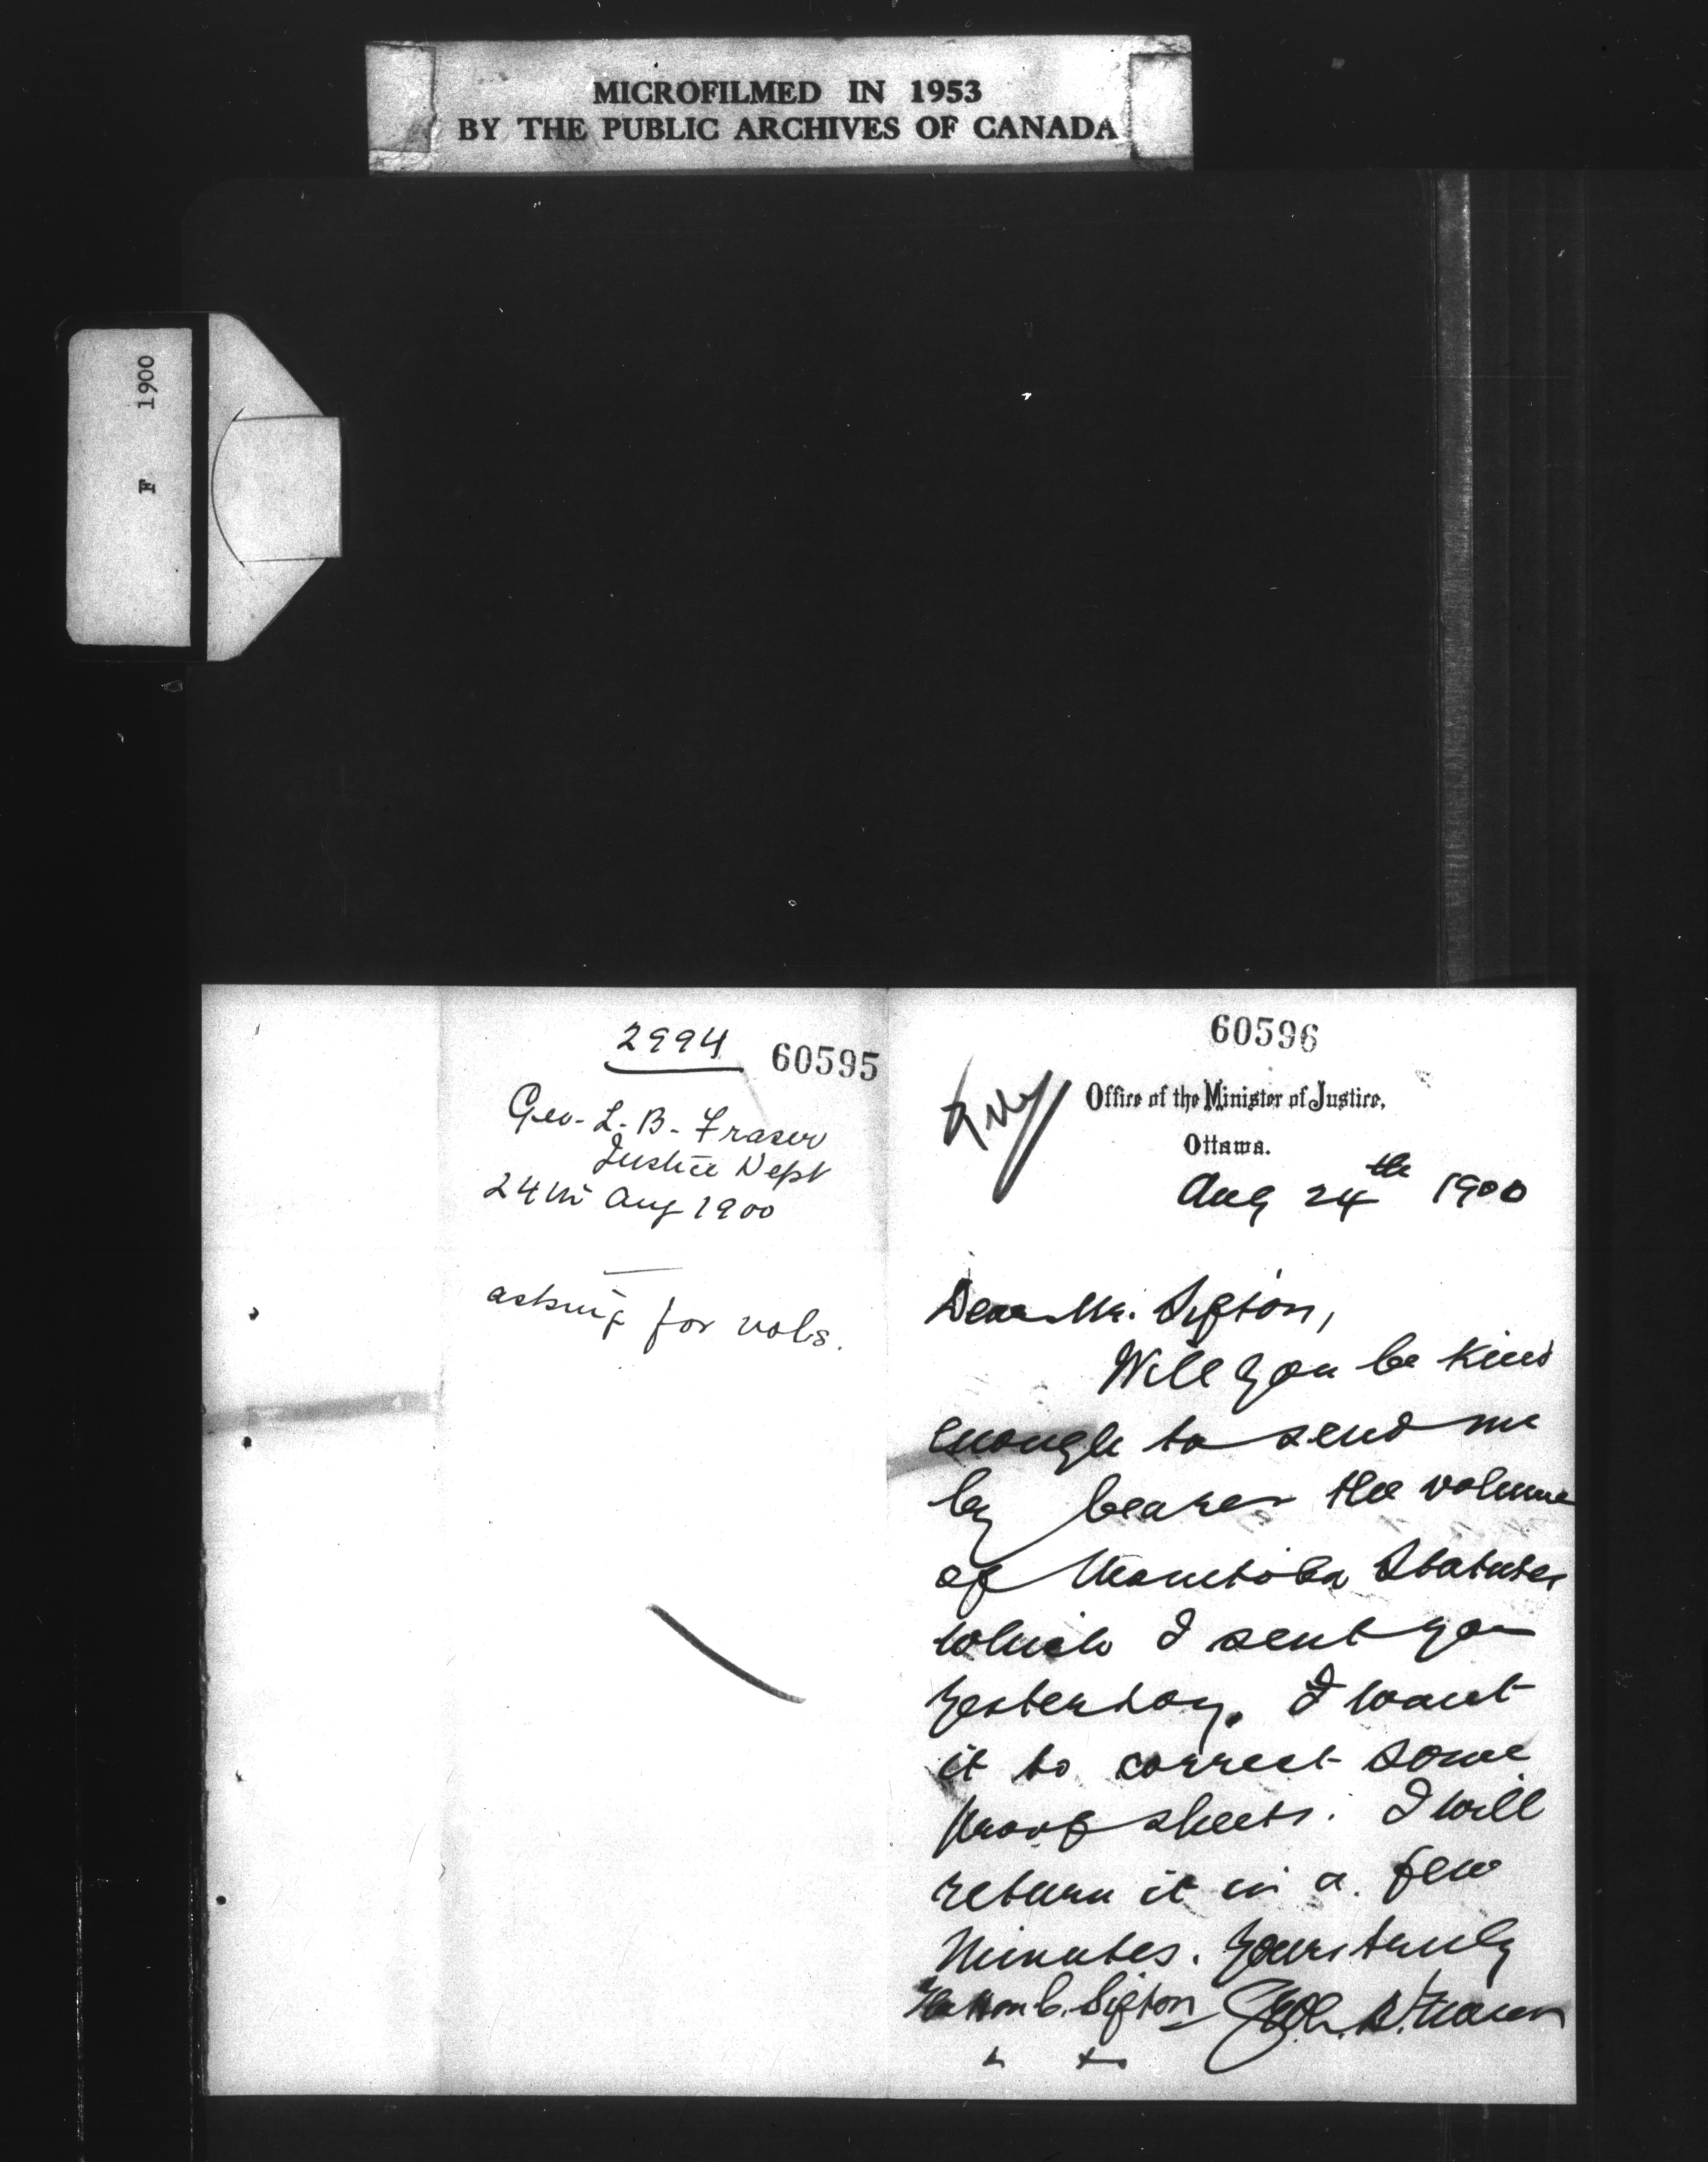 MICROFILMED IN 1953
BY THE PUBLIC ARCHIVES OF CANADA
F 1900
2994
60595
Geo. L. B. Fraser
Justice Dept
24th Aug 1900
asking for vols.
60596
Office of the Minister of Justice,
Ottawa.
Aug 24th 1900
Dear Mr. Sifton,
Will you be kind
enough to send me
by bearer the volume
of Manitoba Statutes
which I sent you
yesterday. I want
it to correct some
proof sheets. I will
return it in a few
minutes. Yours truly
Hon C. Sifton Geo. L. B. Fraser